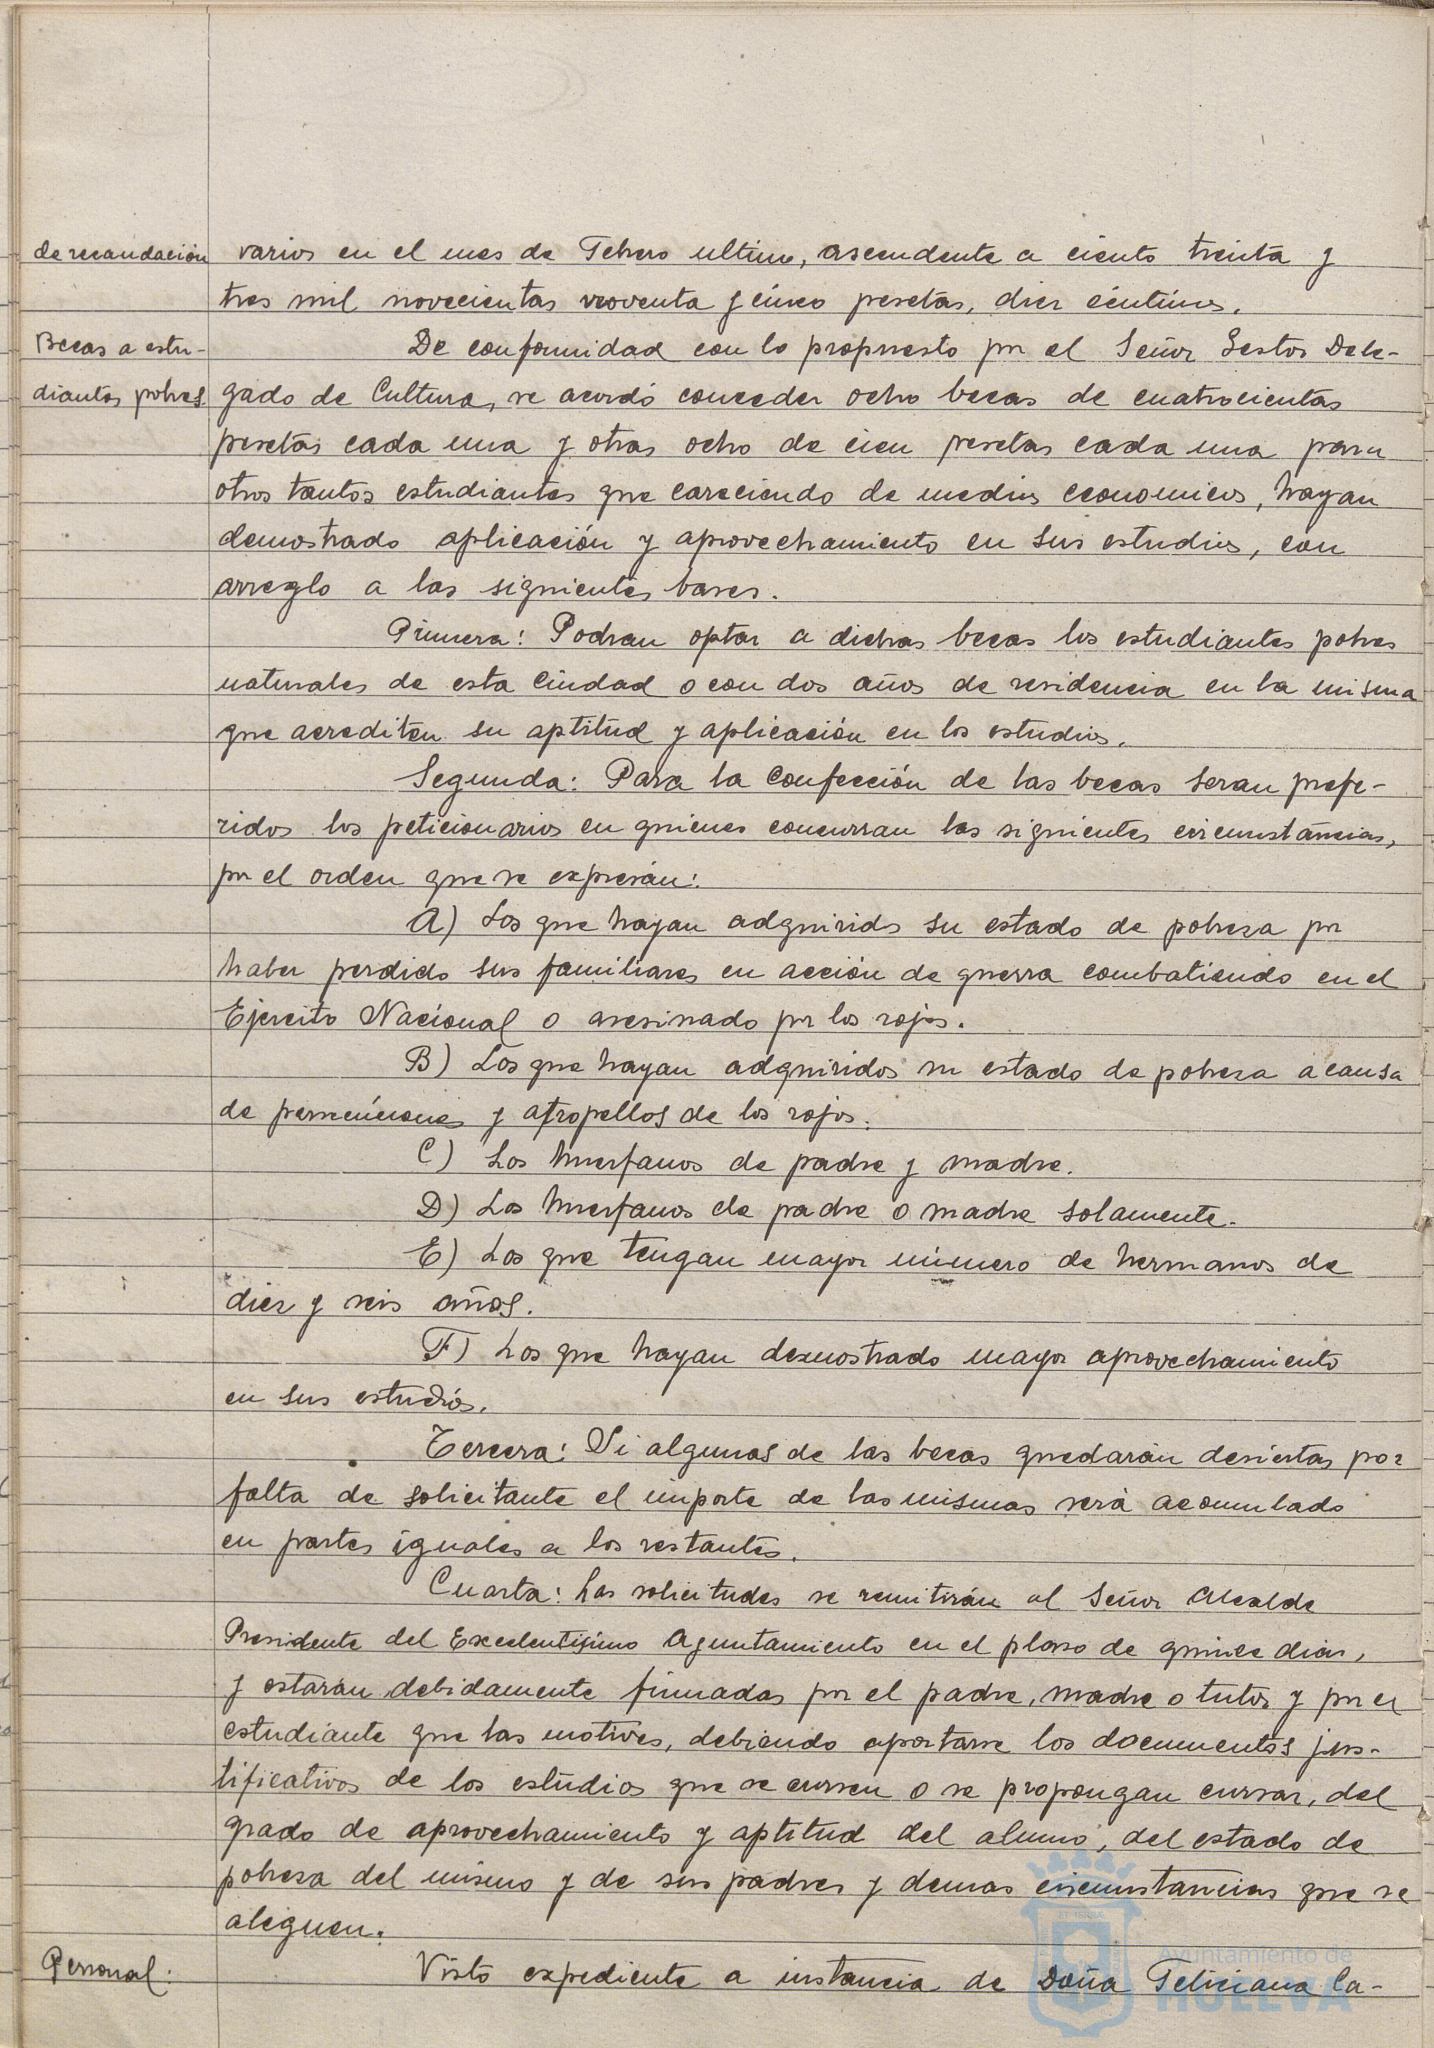 de recaudación
varios en el mes de Febrero ultimo, ascendente a ciento treinta y
tres mil novecientas noventa y cinco pesetas, diez céntimos.
Becas a estu-
diantes pobres.
De conformidad con lo propuesto por el Señor Gestor Dele-
gado de Cultura, se acordó conceder ocho becas de cuatrocientas
pesetas cada una y otras ocho de cien pesetas cada una para
otros tantos estudiantes que careciendo de medios economicos, hayan
demostrado aplicación y aprovechamiento en sus estudios, con
arreglo a las siguientes bases.
Primera: Podran optar a dichas becas los estudiantes pobres
naturales de esta Ciudad o con dos años de residencia en la misma
que acrediten su aptitud y aplicación en los estudios.
Segunda: Para la Confección de las becas seran prefe-
ridos los peticionarios en quienes concurran las siguientes circunstancias,
por el orden que se expresan:
A) Los que hayan adquirido su estado de pobreza por
haber perdido sus familiares en acción de guerra combatiendo en el
Ejercito Nacional o asesinado por los rojos.
B) Los que hayan adquiridos su estado de pobreza a causa
de persecuciones y atropellos de los rojos.
C) Los huerfanos de padre y madre.
D) Los huerfanos de padre o madre solamente.
E) Los que tengan mayor número de hermanos de
diez y seis años.
F) Los que hayan demostrado mayor aprovechamiento
en sus estudios.
Tercera: Si algunas de las becas quedarán desiertas por
falta de solicitante el importe de las mismas será acomulado
en partes iguales a los restantes.
Cuarta: Las solicitudes se remitirán al Señor Alcalde
Presidente del Excelentisimo Ayuntamiento en el plazo de quince dias,
y estarán debidamente firmadas por el padre, madre o tutor y por el
estudiante que las motives, debiendo aportarse los documentos jus-
tificativos de los estudios que se cursen o se propongan cursar, del
grado de aprovechamiento y aptitud del alumo, del estado de
pobreza del mismo y de sus padres y demas circunstancias que se
aleguen.
Personal:
Visto expediente a instancia de Doña Feliciana Ca-
Ayuntamiento de
HUELVA